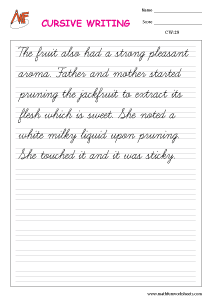 Name
Score
CW:28
CURSIVE WRITING
The fruit also had a strong pleasant
aroma. Father and mother started
pruning the jackfruit to extract its
flesh which is sweet. She noted a
white milky liquid upon pruning.
She touched it and it was sticky.
www.mathfunworksheets.com